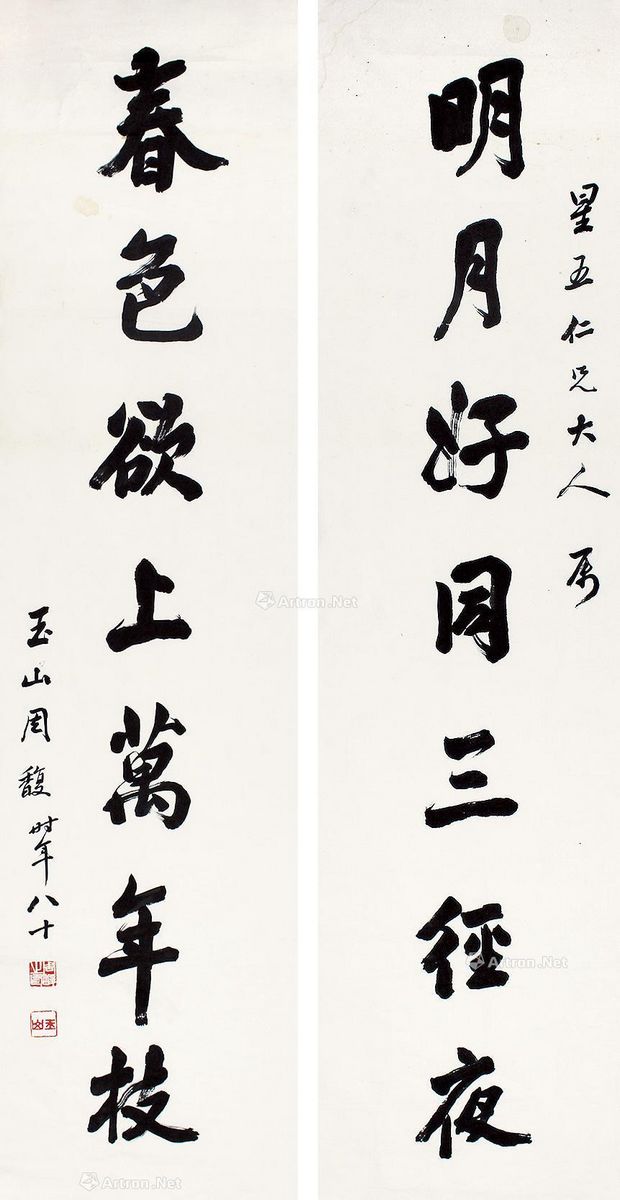 星五仁兄大人属
明月好同三徑夜
春色欲上萬年枝
玉山周馥时年八十
玉山
Artron.Net
Artron.Net
Artron.Net